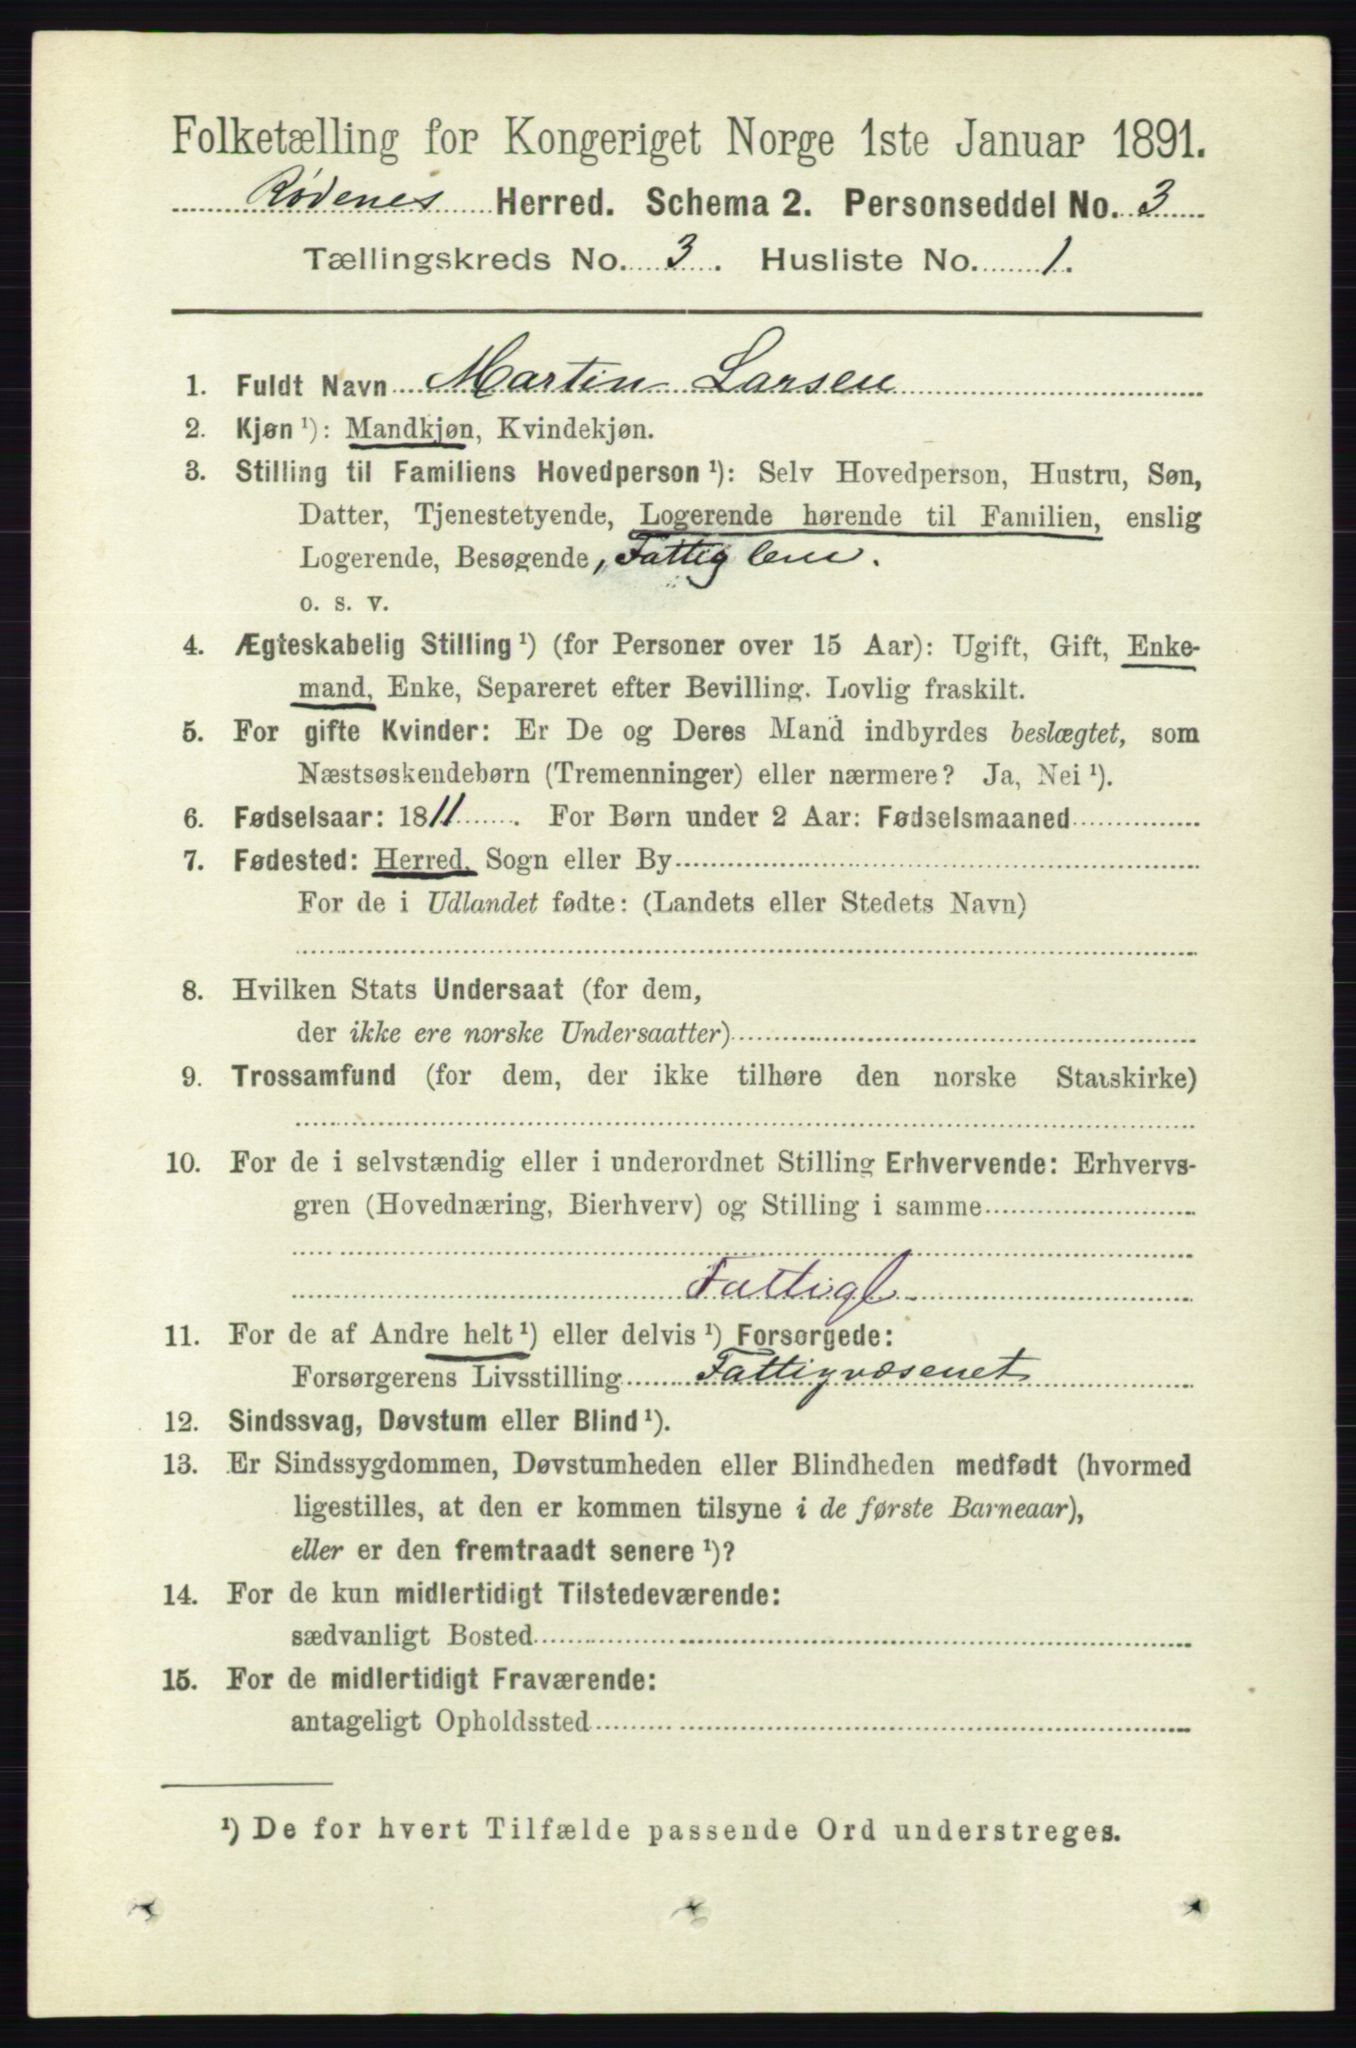 Folketælling for Kongeriget Norge 1ste Januar 1891.
Rødenes Herred. Schema 2. Personseddel No. 3
Tællingskreds No. 3. Husliste No. 1.
1. Fuldt Navn Martin Larsen
2. Kjøn ¹): Mandkjøn, Kvindekjøn.
3. Stilling til Familiens Hovedperson ¹): Selv Hovedperson, Hustru, Søn,
Datter, Tjenestetyende, Logerende hørende til Familien, enslig
Logerende, Besøgende, Fattiglem.
o. s. v.
4. Ægteskabelig Stilling ¹) (for Personer over 15 Aar): Ugift, Gift, Enke-
mand, Enke, Separeret efter Bevilling. Lovlig fraskilt.
5. For gifte Kvinder: Er De og Deres Mand indbyrdes beslægtet, som
Næstsøskendebørn (Tremenninger) eller nærmere? Ja, Nei ¹).
6. Fødselsaar: 1811. For Børn under 2 Aar: Fødselsmaaned
7. Fødested: Herred, Sogn eller By
For de i Udlandet fødte: (Landets eller Stedets Navn)
8. Hvilken Stats Undersaat (for dem,
der ikke ere norske Undersaatter)
9. Trossamfund (for dem, der ikke tilhøre den norske Statskirke)
10. For de i selvstændig eller i underordnet Stilling Erhvervende: Erhvervs-
gren (Hovednæring, Bierhverv) og Stilling i samme
Fattigl
11. For de af Andre helt ¹) eller delvis ¹) Forsørgede:
Forsørgerens Livsstilling Fattigvæsenet
12. Sindssvag, Døvstum eller Blind ¹).
13. Er Sindssygdommen, Døvstumheden eller Blindheden medfødt (hvormed
ligestilles, at den er kommen tilsyne i de første Barneaar),
eller er den fremtraadt senere ¹)?
14. For de kun midlertidigt Tilstedeværende:
sædvanligt Bosted
15. For de midlertidigt Fraværende:
antageligt Opholdssted
¹) De for hvert Tilfælde passende Ord understreges.